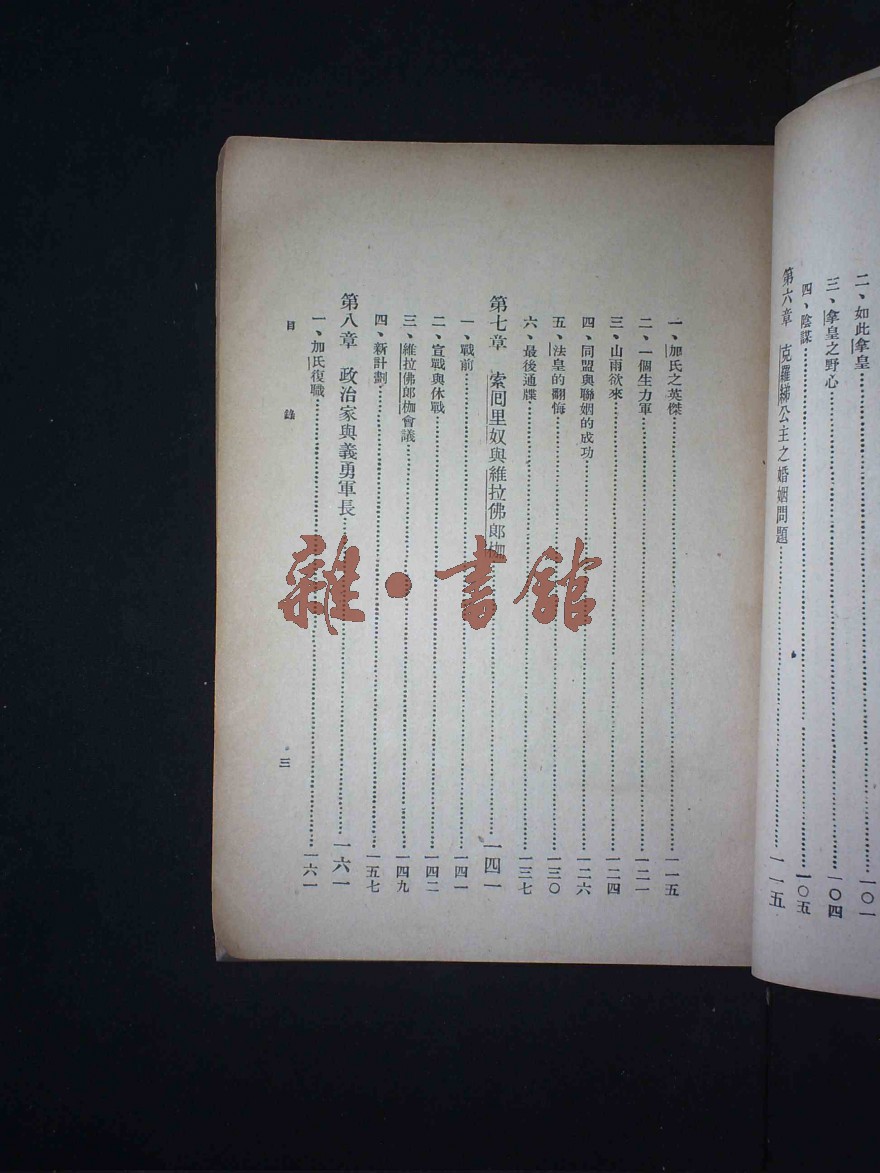 二、如此拿皇……一〇一
三、拿皇之野心……一〇四
四、陰謀……一〇五
第六章　克羅梯公主之婚姻問題……一一五
一、加氏之英傑……一一五
二、一個生力軍……一二一
三、山雨欲來……一二四
四、同盟與聯姻的成功……一二六
五、法皇的翻悔……一三〇
六、最後通牒……一三七
第七章　索囘里奴與維拉佛郎枷……一四一
一、戰前……一四一
二、宣戰與休戰……一四二
三、維拉佛郎枷會議……一四九
四、新計劃……一五七
第八章　政治家與義勇軍長……一六一
一、加氏復職……一六一
目　錄
三
雜·書館